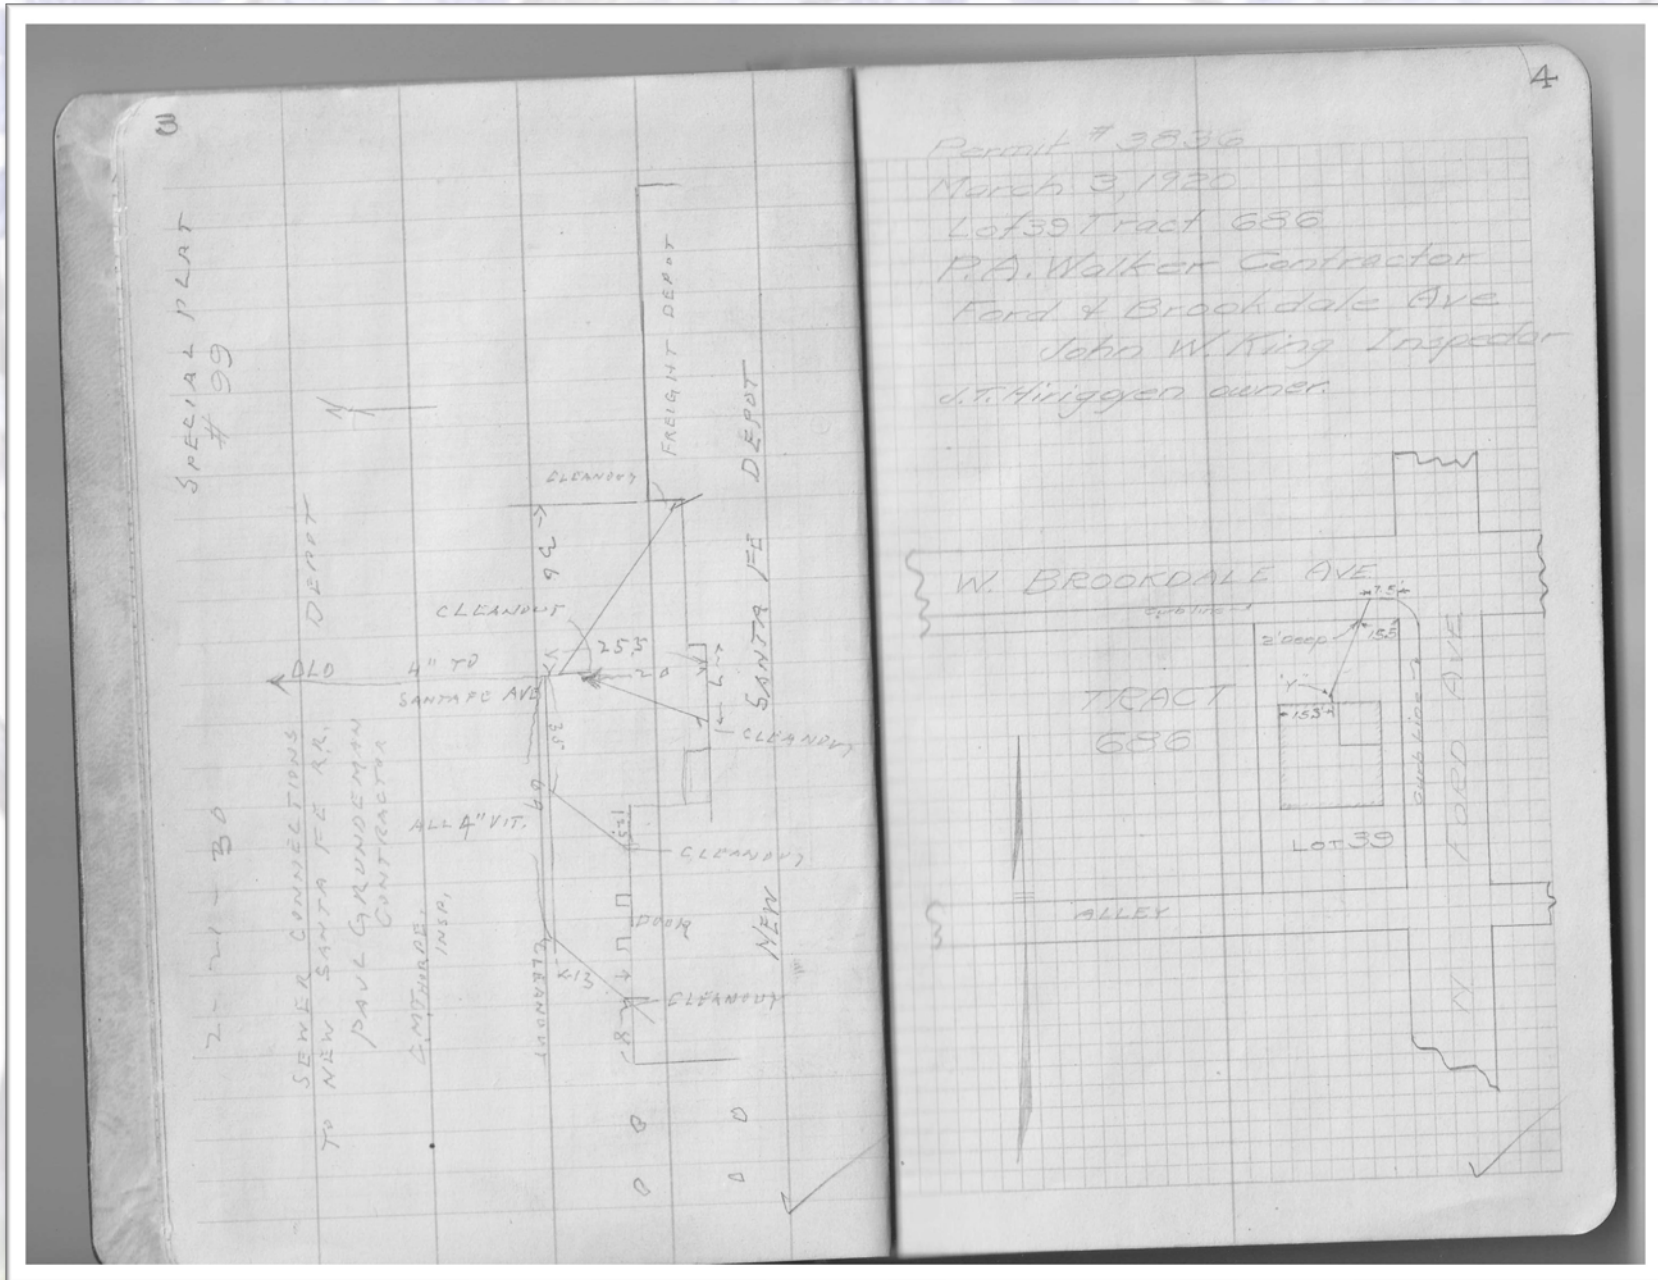 3
SPECIAL PLAT
# 99
2-21-30
SEWER CONNECTIONS
TO NEW SANTA FE RR. DEPOT
PAUL GRUNDEMAN
CONTRACTOR
INSP.
N
OLD
4" TO
SANTA FE AVE
ALL 4" VIT.
CLEANOUT
CLEANOUT
36
25.5
20
38'
69
7
CLEANOUT
CLEANOUT
DOOR
CLEANOUT
CLEANOUT
8
FREIGHT DEPOT
NEW SANTA FE DEPOT
4
Permit #3836
March 3, 1920
Lot 39 Tract 686
P.A. Walker Contractor
Ford & Brookdale Ave
John W. King Inspector
J.T. Hirigoyen owner.
W. BROOKDALE AVE.
7.5
2' deep
15.5
"Y"
15.5
TRACT
686
Curb line
LOT 39
N FORD AVE
ALLEY